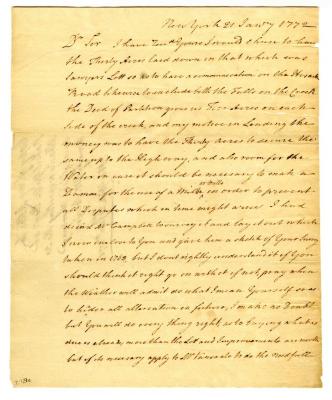 New York 21 Janry 1772
Dr Sir I have Recd yours I would chuse to have
the Thirty Acres laid down in that which was
Sawyers Lott so as to have a communication on the
Road likewise to include both the Falls on the Creek
the Deed of Partition gives us Ten Acres on each
side of the creek, and my motive in Lending the
money was to have the Thirty Acres to secure the
same up to the High way, and also room for the
Water in case it should be necessary to make a
Damm for the use of a Mill or Mills in order to prevent
all Disputes which in time might arise I had
desired Mr Campble to survey it and lay it out which
I now inclose to You and gave him a sketch of Your Survey
taken in 1769, but I dont rightly understand it if You
should think it right go on with it if not, pray when
the Weather will admit do what I mean Yourself so as
to hinder all altercation in future, I make no Doubt
but You will do every thing right, as to Buying what is
due is already more than the Lot and Improvements are worth
but if its necessary apply to Mr to do the needfull